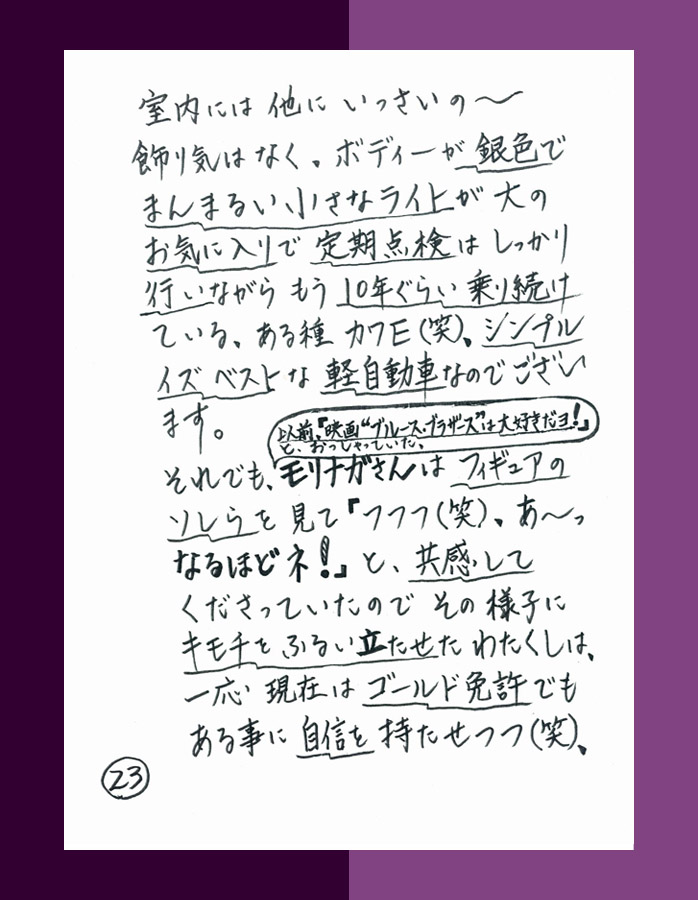 室内には 他に いっさいの〜
飾り気は なく、ボディーが 銀色で
まんまるい 小さな ライトが 大の
お気に入りで 定期点検は しっかり
行いながら もう 10年ぐらい 乗り続け
ている、ある種 カワE(笑)、シンプル
イズ ベストな 軽自動車なのでござい
ます。
以前、『映画“ブルース・ブラザーズ”は大好きだヨ!』
と、おっしゃっていた、
それでも、モリナガさんは フィギュアの
ソレらを 見て『フフフ(笑)、あ〜っ
なるほどネ!』と、共感して
くださっていたので その 様子に
キモチを ふるい立たせた わたくしは、
一応 現在は ゴールド免許でも
ある事に 自信を 持たせつつ(笑)、
23